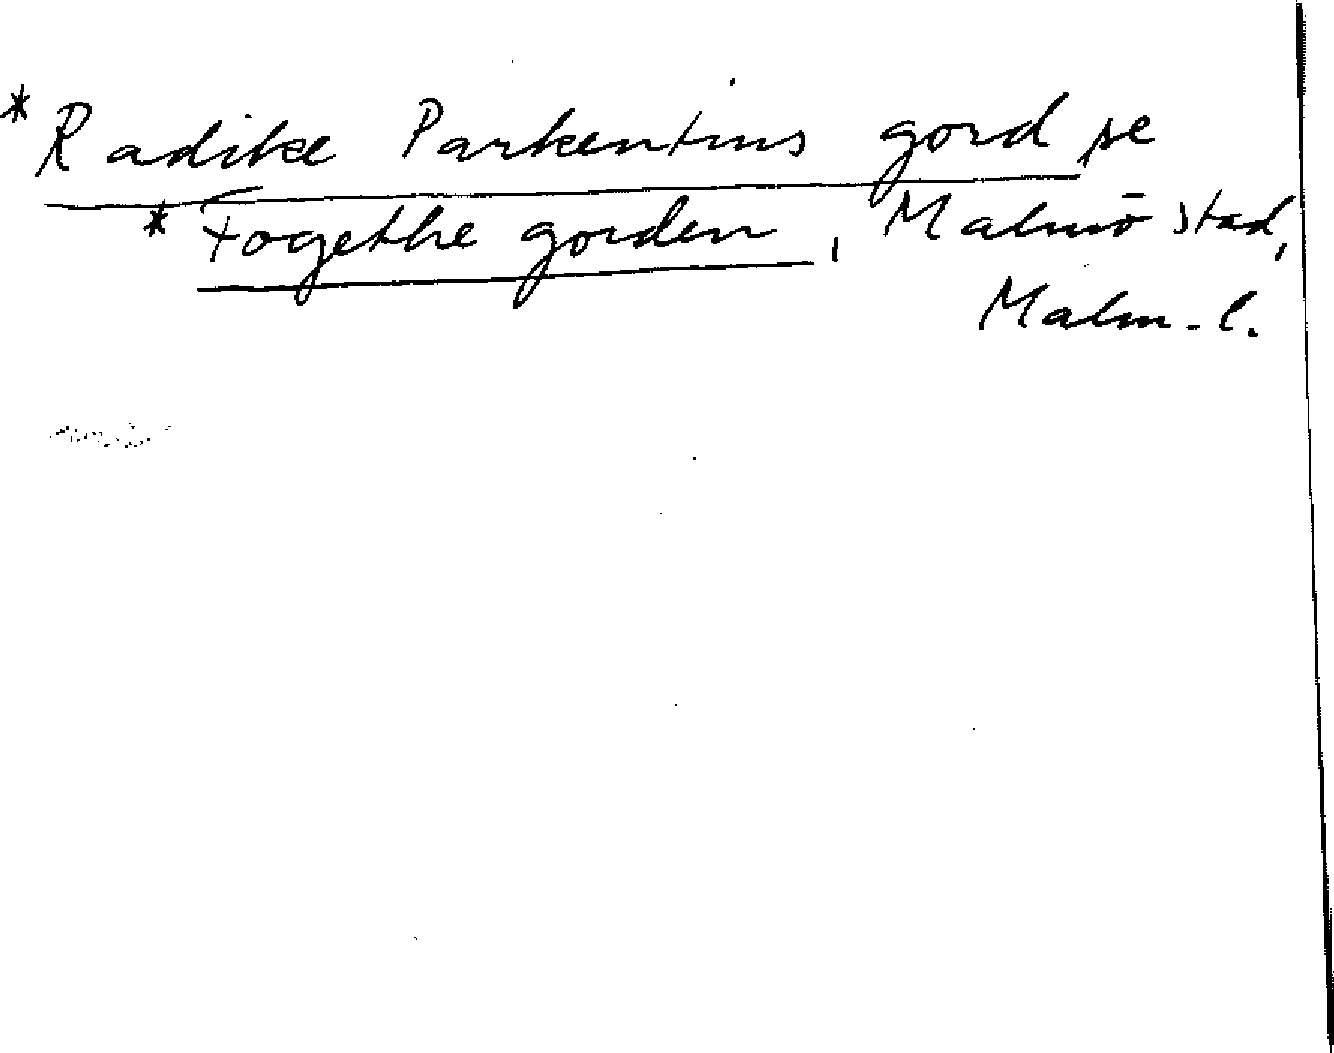 * Radike Parkentins gord se
* Fogethe gorden, Malmö stad,
Malm. l.